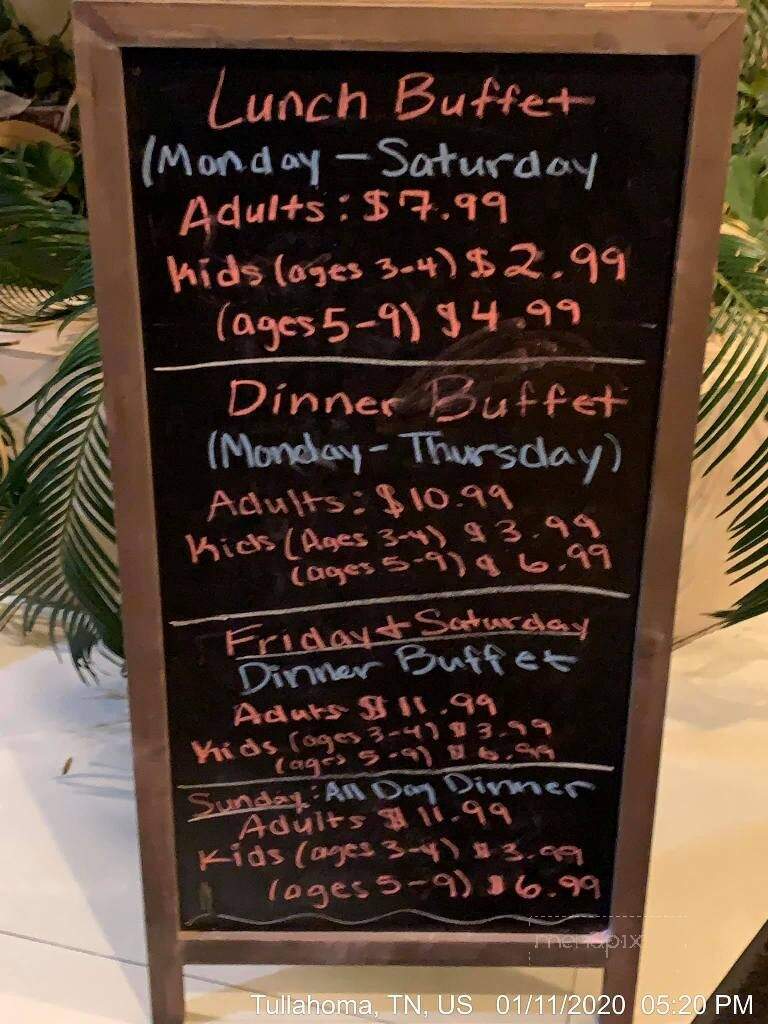 Lunch Buffet
(Monday - Saturday
Adults: $7.99
Kids (ages 3-4) $2.99
(ages 5-9) $4.99
Dinner Buffet
(Monday - Thursday)
Adults: $10.99
Kids (Ages 3-4) $3.99
(ages 5-9) $6.99
Friday + Saturday
Dinner Buffet
Aduts $11.99
Kids (ages 3-4) $3.99
(ages 5-9) $6.99
Sunday: All Day Dinner
Adults $11.99
Kids (ages 3-4) $3.99
(ages 5-9) $6.99
menupix
Tullahoma, TN, US 01/11/2020 05:20 PM